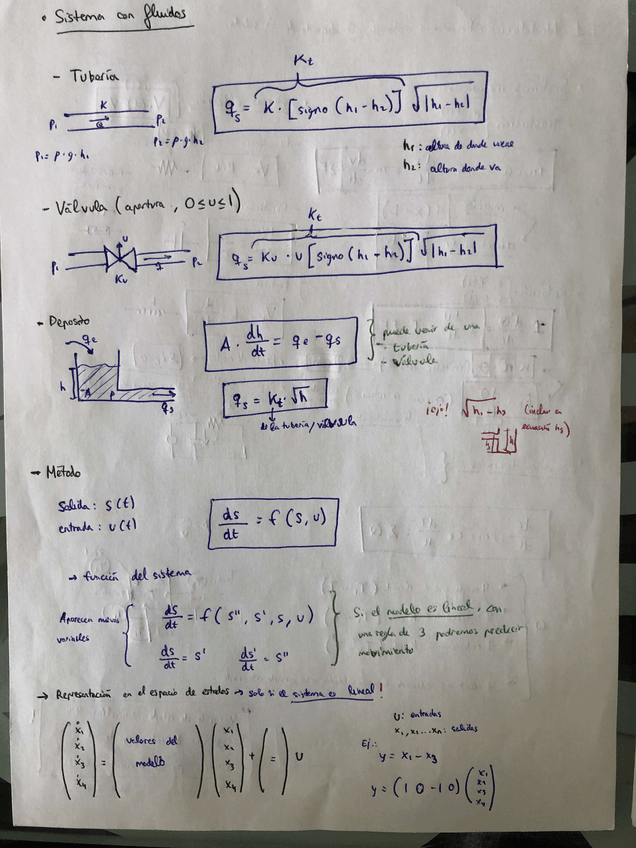 • Sistema con fluidos
- Tubería
Kt
K
Q
P₁ P₂
P₁ = ρ·g·h₁
P₂ = ρ·g·h₂
qs = K · [signo (h₁ - h₂)] √|h₁ - h₂|
h₁: altura de donde viene
h₂: altura donde va
- Válvula (apertura, 0 ≤ u ≤ 1)
Kt
u
P₁ q P₂
Ku
qs = Ku · u [signo (h₁ - h₂)] √|h₁ - h₂|
- Deposito
qe
h
A P
qs
A · dh/dt = qe - qs
puede venir de una
- tubería
- válvula
qs = Kt · √h
de la tubería/válvula
¡ojo! √h₁ - h₃ (incluir en
ecuación h₃)
→ Método
Salida: s(t)
entrada: u(t)
ds/dt = f(s, u)
→ función del sistema
Aparecen nuevas
variables
ds/dt = f(s'', s', s, u)
ds/dt = s' ds'/dt = s''
Si el modelo es lineal, con
una regla de 3 podremos predecir
movimiento
→ Representación en el espacio de estados → solo si el sistema es lineal!
(ẋ₁ ẋ₂ ẋ₃ ẋ₄) = (valores del modelo) (x₁ x₂ x₃ x₄) + (=) u
u: entradas
x₁, x₂ ... xn: salidas
Ej.:
y = x₁ - x₃
y = (1 0 -1 0) (x₁ x₂ x₃ x₄)